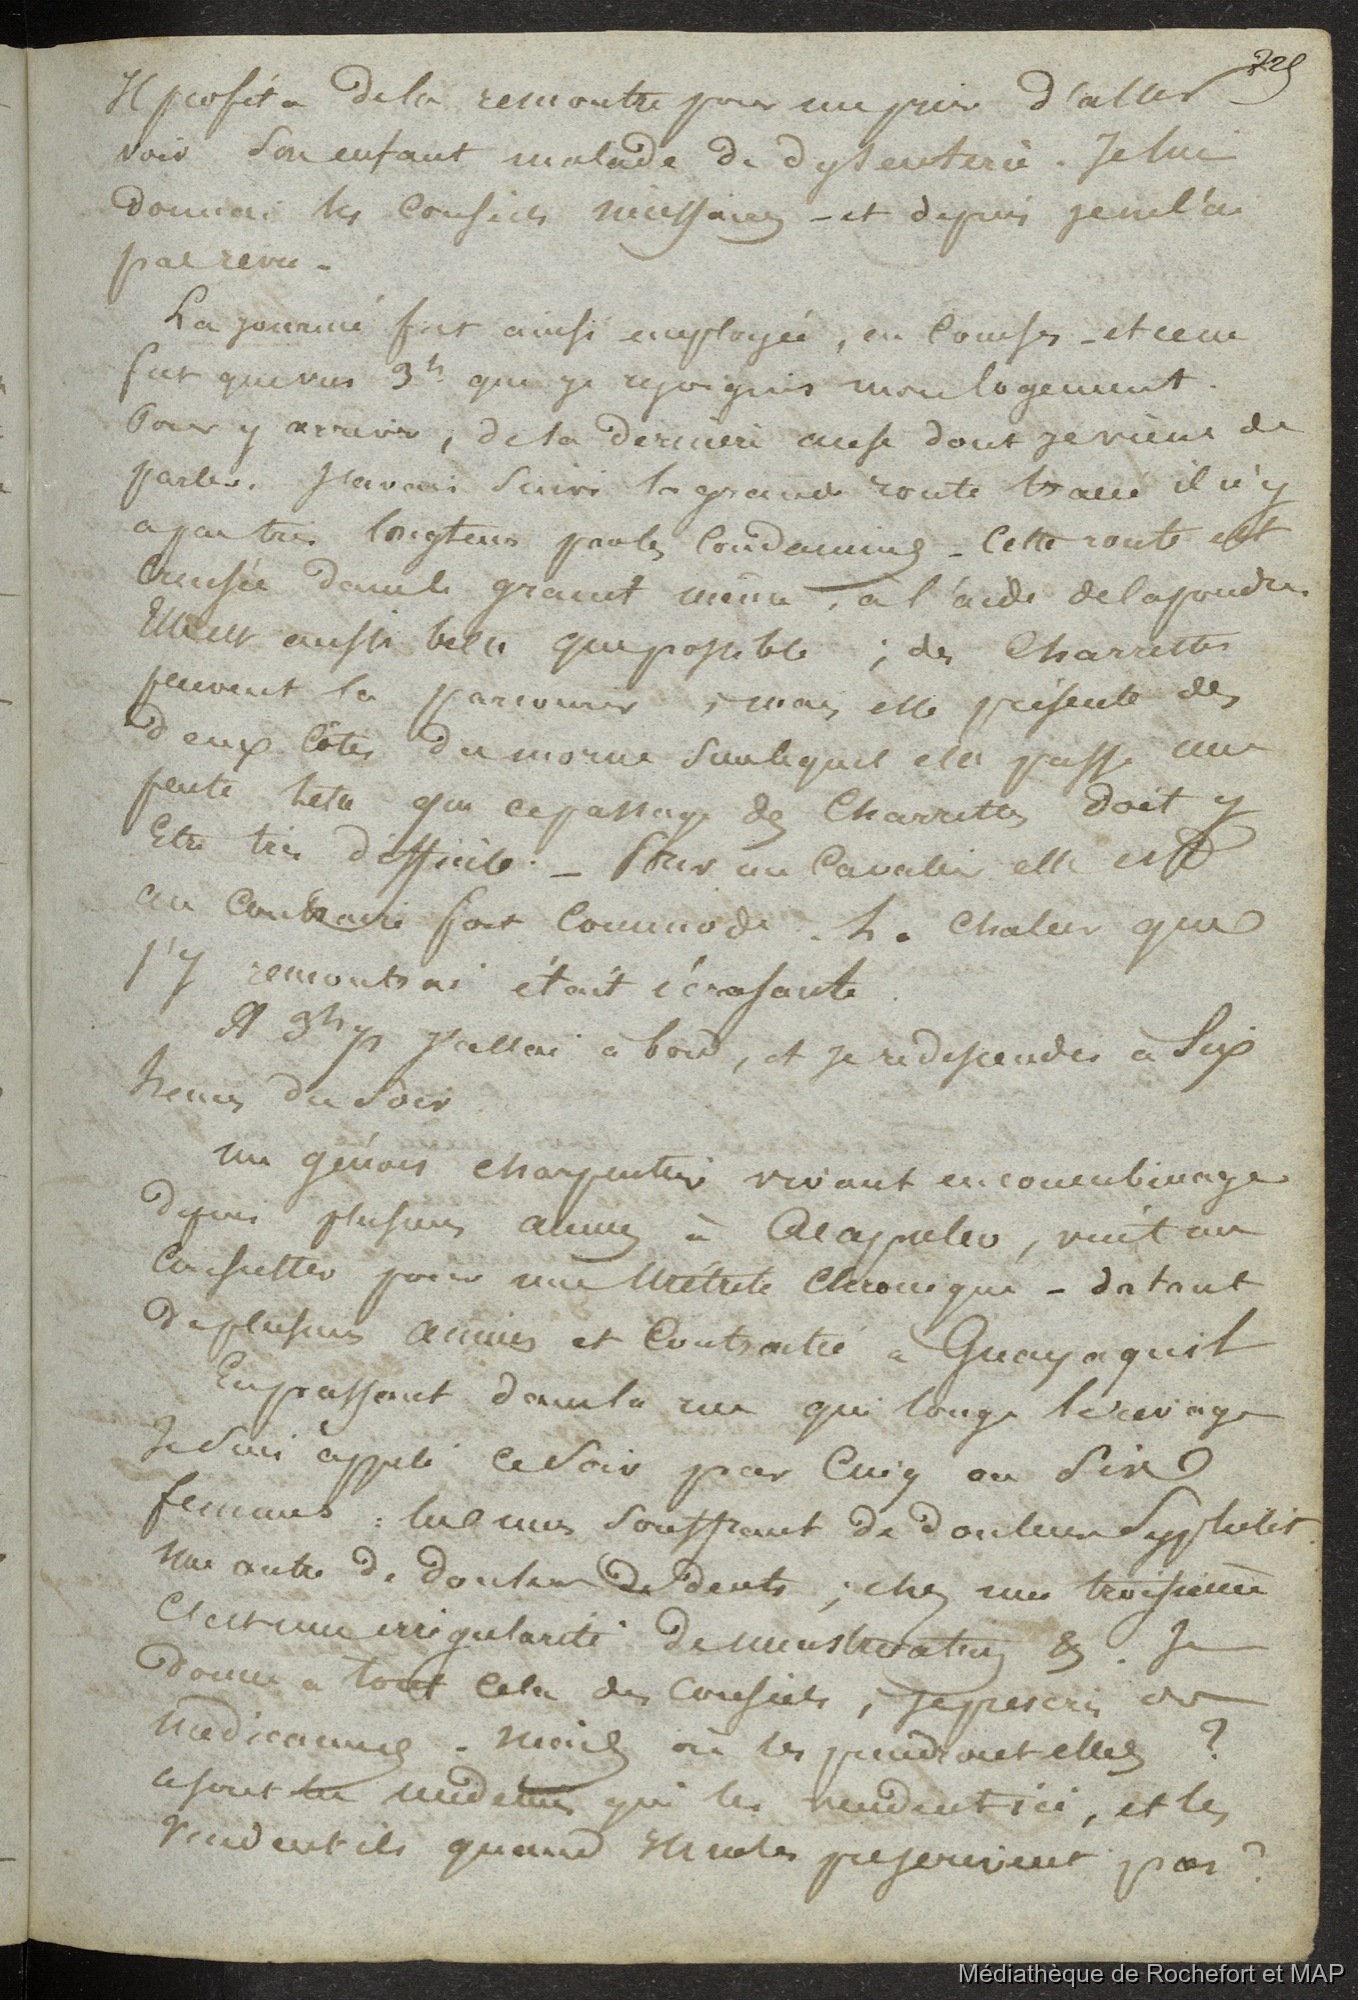 725
Il profita de la rencontre pour me prier d'aller
voir son enfant malade de dyssenterie. Je lui
donnai les conseils nécessaires - et depuis je ne l'ai
pas revu -
La journée fut ainsi employée, en courses - et ce ne
fut que vers 3h que je rejoignis mon logement.
Pour y arriver, de la dernière anse dont je viens de
parler. J'avais suivi la grande route tracée il n'y
a pas très longtems par les condamnés - Cette route est
creusée dans le granit même, à l'aide de la poudre
Elle est aussi belle que possible ; des charrettes
peuvent la parcourir ; mais elle présente des
deux côtés du morne sur lequel elle passe une
pente telle que ce passage de charrettes doit y
être très difficile. - Pour un cavalier elle est
au contraire fort commode. La chaleur que
j'y rencontrai était écrasante.
A 3h 1/2 j'allai à bord, et je redescendis à six
heures du soir.
Un génois charpentier vivant en concubinage
depuis plusieurs années à Acapulco, vint me
consulter pour une urétrite chronique - datant
de plusieurs années et contractée à Guayaquil
En passant dans la rue qui longe le rivage
Je suis appelé ce soir par cinq ou six
femmes : les unes souffrant de douleurs syphilit.
une autre de douleur de dents ; chez une troisième
c'est une irrégularité de menstruation &. Je
donne à tout cela des conseils, je prescris des
médicamens - mais où les prendront elles ?
ce sont les médecins qui les vendent ici, et les
vendent ils quand ils ne les prescrivent pas ?
Médiathèque de Rochefort et MAP